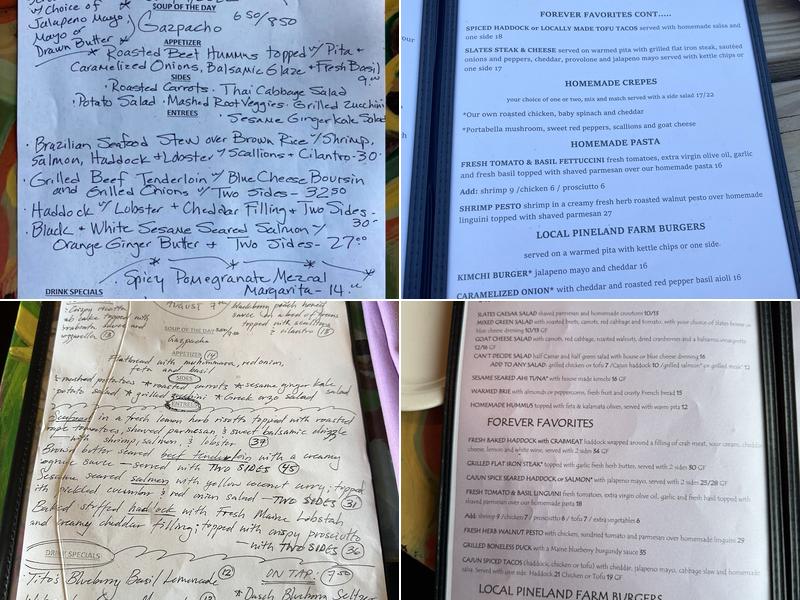 w/ choice of
Jalapeno Mayo,
Mayo or
Drawn Butter *
SOUP OF THE DAY
Gazpacho 6 50/8 50
APPETIZER
* Roasted Beet Hummus topped w/ Pita +
Caramelized Onions, Balsamic Glaze + Fresh Basil
SIDES
· Roasted Carrots · Thai Cabbage Salad
· Potato Salad · Mashed Root Veggies · Grilled Zucchini
· Sesame Ginger Kale Salad
ENTREES
· Brazilian Seafood Stew over Brown Rice w/ Shrimp,
Salmon, Haddock + Lobster w/ Scallions + Cilantro - 30
· Grilled Beef Tenderloin w/ Blue Cheese Boursin
and Grilled Onions w/ Two Sides - 32 50
· Haddock w/ Lobster + Cheddar Filling + Two Sides -
30
· Black + White Sesame Seared Salmon w/
Orange Ginger Butter + Two Sides - 27
* Spicy Pomegranate Mezcal
Margarita - 14
DRINK SPECIALS
FOREVER FAVORITES CONT.....
SPICED HADDOCK or LOCALLY MADE TOFU TACOS served with homemade salsa and
one side 18
SLATES STEAK & CHEESE served on warmed pita with grilled flat iron steak, sautéed
onions and peppers, cheddar, provolone and jalapeno mayo served with kettle chips or
one side 17
HOMEMADE CREPES
your choice of one or two, mix and match served with a side salad 17/22
*Our own roasted chicken, baby spinach and cheddar
*Portabella mushroom, sweet red peppers, scallions and goat cheese
HOMEMADE PASTA
FRESH TOMATO & BASIL FETTUCCINI fresh tomatoes, extra virgin olive oil, garlic
and fresh basil topped with parmesan over our homemade pasta 16
Add: shrimp 9 /chicken 6 / prosciutto 6
SHRIMP PESTO shrimp in a creamy fresh herb roasted walnut pesto over homemade
linguini topped with shaved parmesan 27
LOCAL PINELAND FARM BURGERS
served on a warmed pita with kettle chips or one side.
KIMCHI BURGER* jalapeno mayo and cheddar 16
CARAMELIZED ONION* with cheddar and roasted red pepper basil aioli 16
· Crispy risotto
cake topped with
AUGUST 7
Blackberry peach
topped with scallions
& cilantro (15)
SOUP OF THE DAY
Gazpacho
APPETIZER (14)
Flatbread with muhammara, red onion,
feta and basil
SIDES
* mashed potatoes * roasted carrots * sesame ginger kale
* potato salad * grilled zucchini * Greek orzo salad salad
ENTREES
Seafood in a fresh lemon herb risotto topped with roasted
tomatoes, shaved parmesan & sweet balsamic drizzle
with shrimp, salmon, & lobster (37)
Brown butter seared beef tenderloin with a creamy
cognac sauce - served with TWO SIDES (45)
Sesame seared salmon with yellow coconut curry; topped
with pickled cucumber & red onion salad - TWO SIDES (31)
Baked stuffed haddock with Fresh Maine Lobstah
and creamy cheddar filling; topped with crispy prosciutto
with TWO SIDES (36)
DRINK SPECIALS
* Tito's Blueberry Basil Lemonade (12)
ON TAP: (7 50)
SLATES CAESAR SALAD shaved parmesan and homemade croutons 10/13
MIXED GREEN SALAD with roasted beets, carrots, red cabbage and tomato, with your choice of slates house or
blue cheese dressing 10/13 GF
GOAT CHEESE SALAD with carrots, red cabbage, roasted walnuts, dried cranberries and a balsamic vinaigrette
12/16 GF
CAN'T DECIDE SALAD half Caesar and half green salad with house or blue cheese dressing 16
ADD TO ANY SALAD: grilled chicken or tofu 7 /Cajun haddock 10 / grilled salmon* or grilled steak* 12
SESAME SEARED AHI TUNA* with house made kimchi 16 GF
WARMED BRIE with almonds or peppercorns, fresh fruit and crusty French bread 15
HOMEMADE HUMMUS topped with feta & kalamata olives, served with warm pita 12
FOREVER FAVORITES
FRESH BAKED HADDOCK with CRABMEAT haddock wrapped around a filling of crab meat, sour cream, cheddar
cheese, lemon and white wine, served with 2 sides 34 GF
GRILLED FLAT IRON STEAK* topped with garlic fresh herb butter, served with 2 sides 30 GF
CAJUN SPICE SEARED HADDOCK or SALMON* with jalapeno mayo, served with 2 sides 25/28 GF
FRESH TOMATO & BASIL LINGUINI fresh tomatoes, extra virgin olive oil, garlic and fresh basil topped with
shaved parmesan over our homemade pasta 18
Add: shrimp 9 /chicken 7 / prosciutto 6 / tofu 7 / extra vegetables 6
FRESH HERB WALNUT PESTO with chicken, sundried tomato and parmesan over homemade linguini 29
GRILLED BONELESS DUCK with a Maine blueberry burgundy sauce 35
CAJUN SPICED TACOS (haddock, chicken or tofu) with cheddar, jalapeno mayo, cabbage slaw and homemade
salsa. Served with one side. Haddock 21 Chicken or Tofu 19 GF
LOCAL PINELAND FARM BURGERS